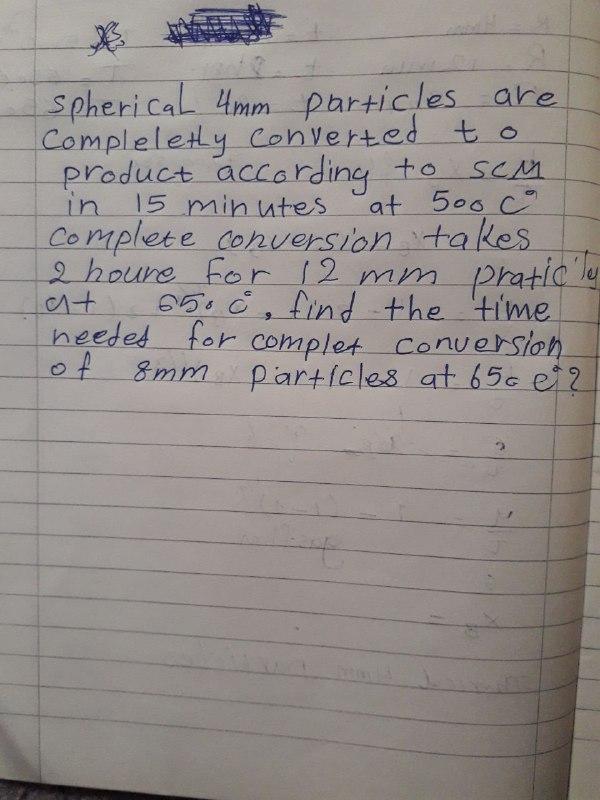 Spherical 4mm particles are
Compleletly converted to
product according to SCM
in 15 minutes at 500 C°
complete conversion takes
2 houre for 12 mm
at 650 C°, find the time
needed for complet conversion
of 8mm particles at 650 C°?